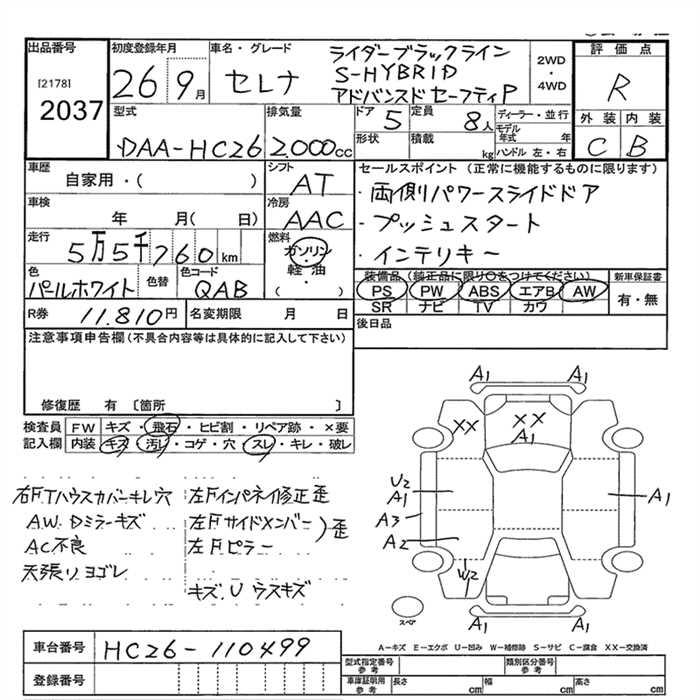 出品番号
[2178]
2037
初度登録年月
26 9月
車名・グレード
セレナ
ライダーブラックライン
S-HYBRID
アドバンスドセーフティP
2WD
・
4WD
評価点
R
外装 内装
C B
型式
DAA-HC26
排気量
2.000cc
ドア 5
定員 8人
ディーラー・並行
モデル年式 年
形状
積載 kg
ハンドル 左・右
車歴
自家用・( )
シフト
AT
セールスポイント (正常に機能するものに限ります)
・両側パワースライドドア
・プッシュスタート
・インテリキー
車検
年 月( 日)
冷房
AAC
走行
5万5千760km
燃料
ガソリン
・
軽油
・
( )
色
パールホワイト
色替
色コード
QAB
装備品 (純正品に限り○をつけてください)
PS PW ABS エアB AW
SR ナビ TV カワ
新車保証書
有・無
R券 11.810円
名変期限 月 日
後日品
注意事項申告欄(不具合内容等は具体的に記入して下さい)
修復歴 有 [箇所 ]
検査員記入欄
FW キズ・飛石・ヒビ割・リペア跡・×要
内装 キズ・汚レ・コゲ・穴・スレ・キレ・破レ
右FTハウスカバーキレ穴
AW.Dミラーキズ
AC不良
天張りヨゴレ
左Fインパネイ修正歪
左Fサイドメンバー)歪
左Fピラー
キズ.Uウスキズ
A1 A1
XX XX
A1
U2
A1
A1
A3
A2
W2
A1 A1
スペア
A-キズ E-エクボ U-凹み W-補修跡 S-サビ C-腐食 XX-交換済
車台番号 HC26-110499
登録番号
型式指定番号参考
類別区分番号参考
車庫証明用参考
長さ cm
幅 cm
高さ cm